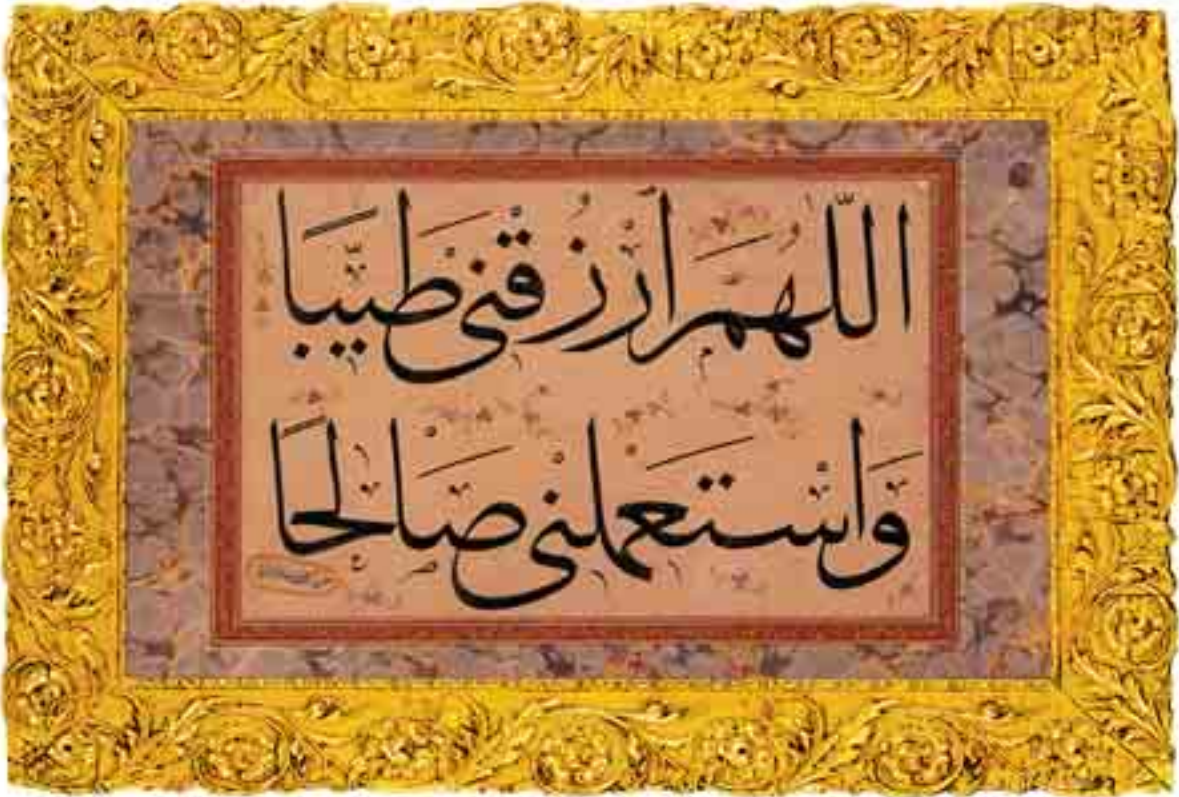 اللّٰهُمَّ ارْزُقْنِى طَيِّبًا
وَاسْتَعْمِلْنِى صَالِحًا